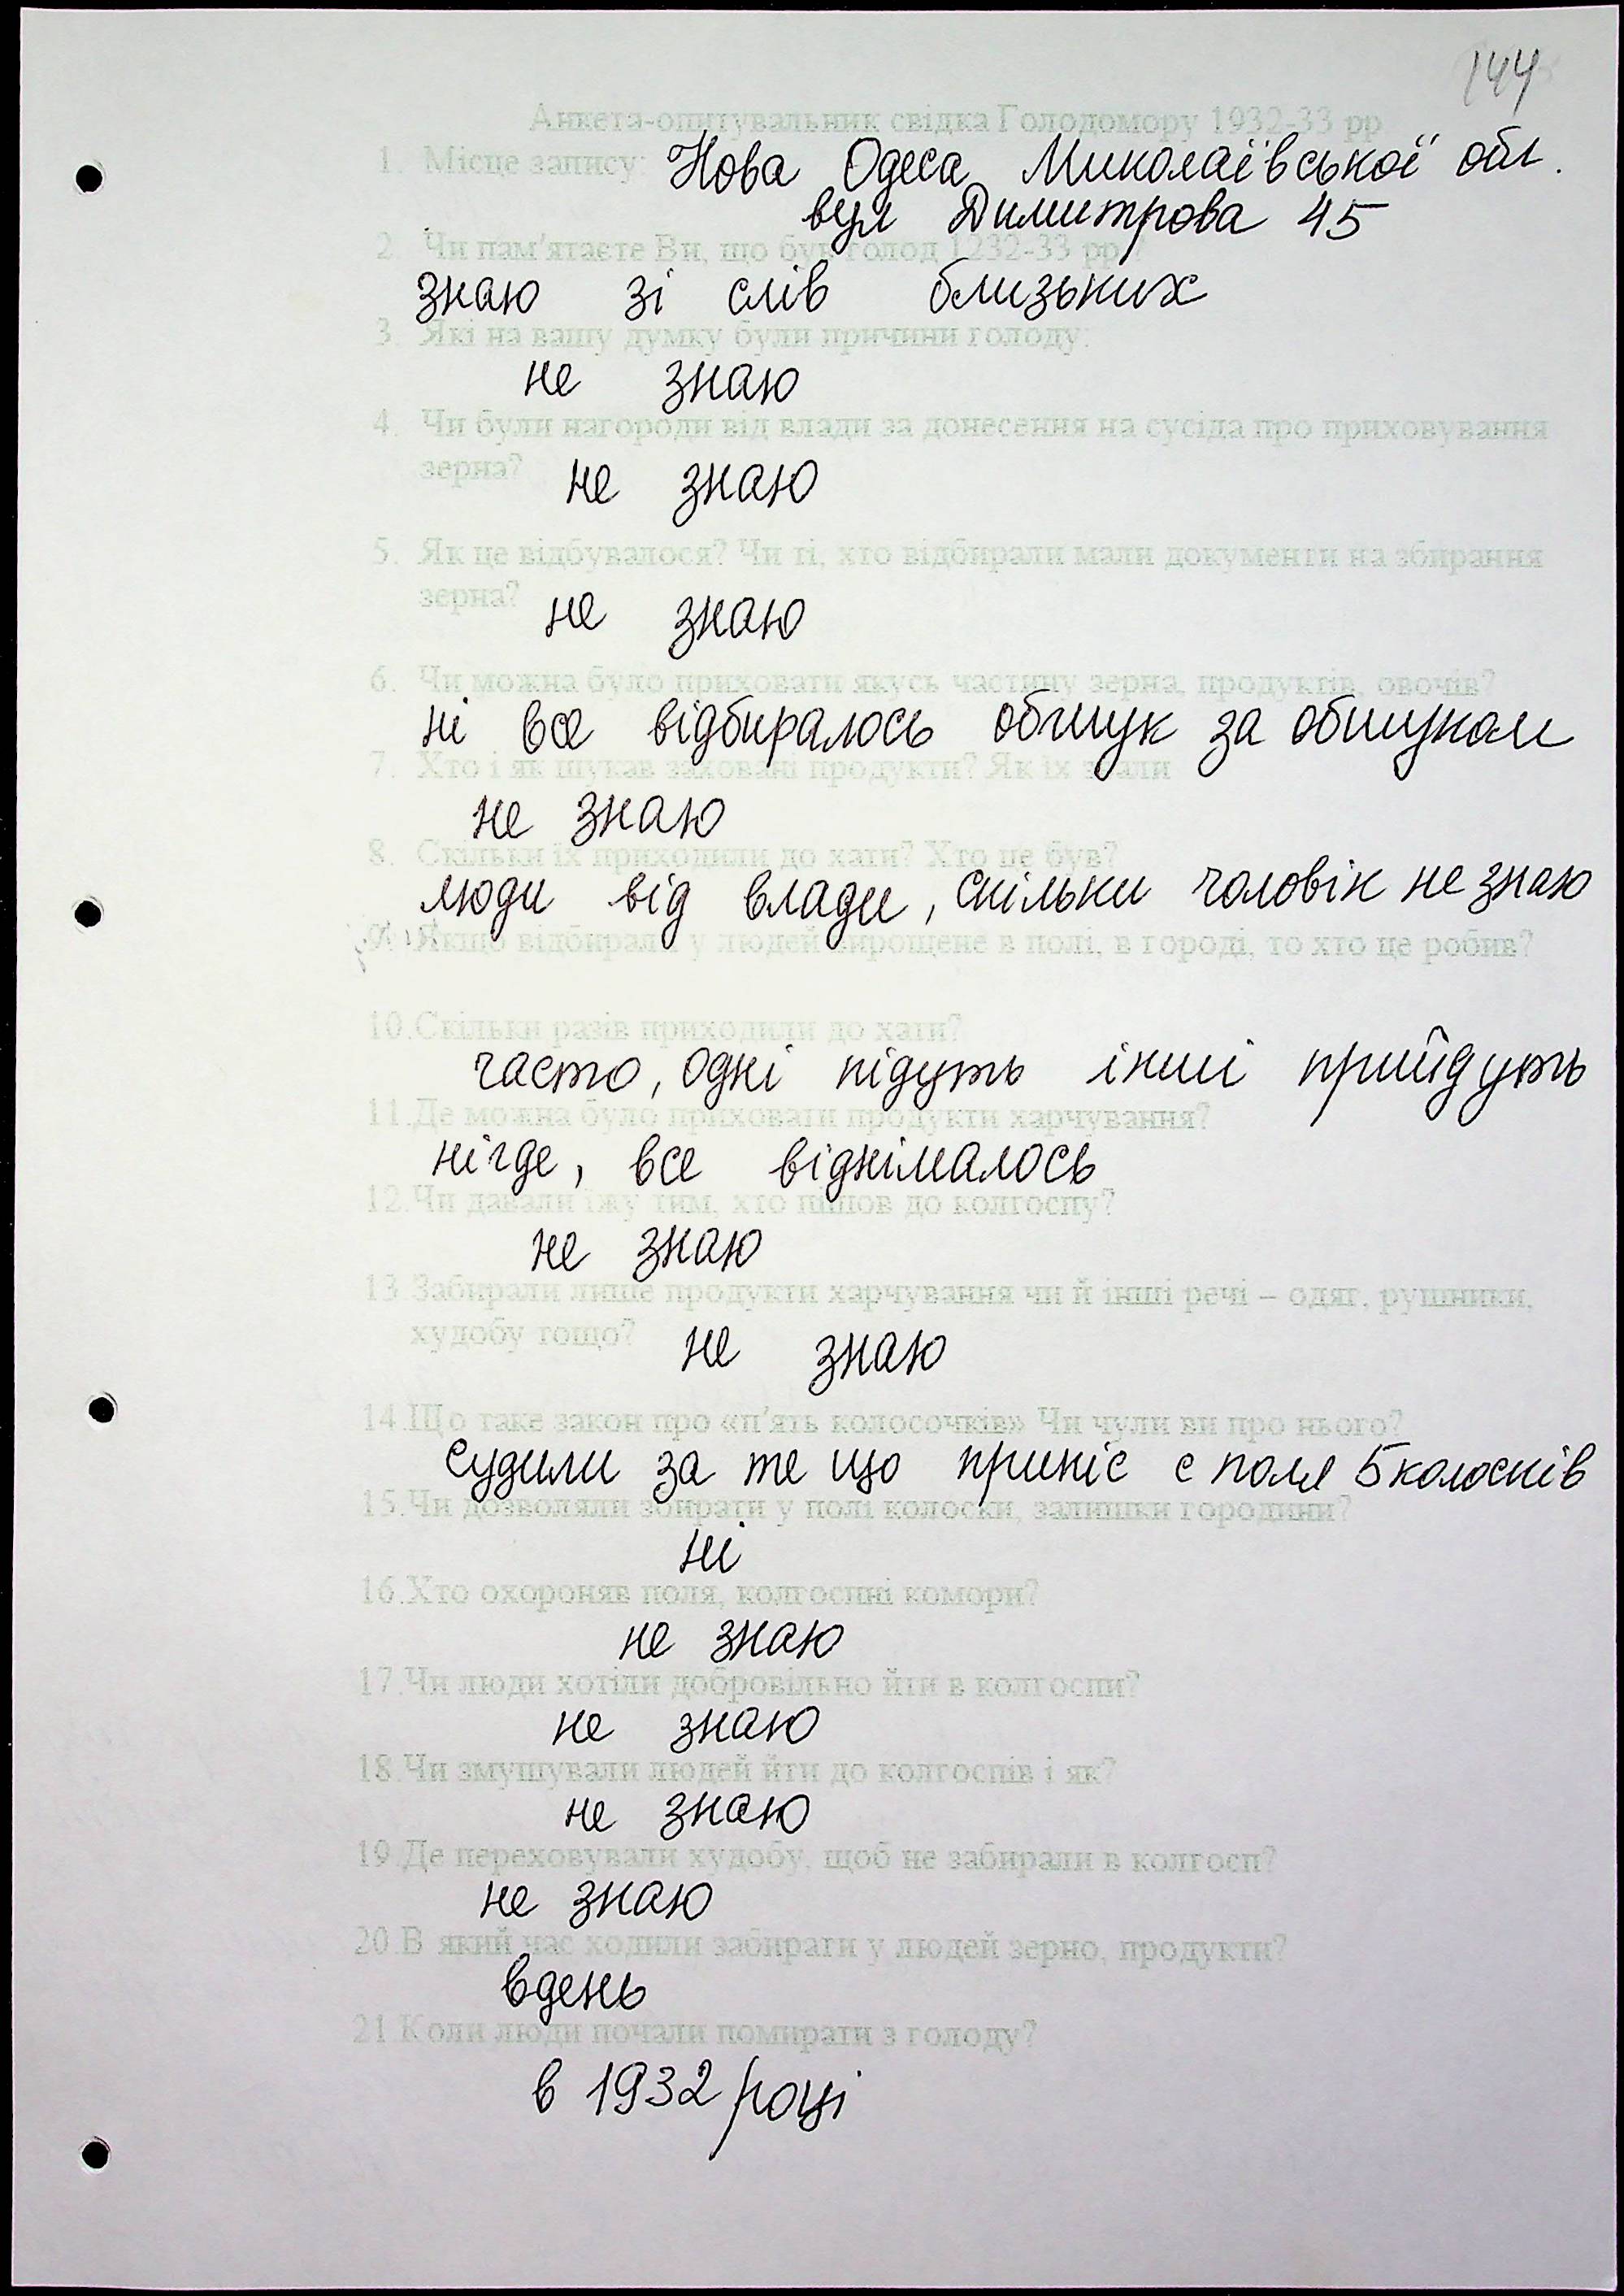 144
Анкета-опитувальник свідка Голодомору 1932-33 рр
1. Місце запису: Нова Одеса Миколаївської обл.
вул Димитрова 45
2. Чи пам'ятаєте Ви, що був голод 1232-33 рр
знаю зі слів близьких
3. Які на вашу думку були причини голоду:
не знаю
4. Чи були нагороди від влади за донесення на сусіда про приховування
зерна? не знаю
5. Як це відбувалося? Чи ті, хто відбирали мали документи на збирання
зерна? не знаю
6. Чи можна було приховати якусь частину зерна, продуктів, овочів?
ні все відбиралось обшук за обшуком
7. Хто і як шукав заховані продукти? Як їх звали
не знаю
8. Скільки їх приходили до хати? Хто це був?
люди від влади, скільки чоловік не знаю
9. Якщо відбирали у людей вирощене в полі, в городі, то хто це робив?
10.Скільки разів приходили до хати?
часто, одні підуть інші прийдуть
11.Де можна було приховати продукти харчування?
нігде, все віднімалось
12.Чи давали їжу тим, хто пішов до колгоспу?
не знаю
13.Забирали лише продукти харчування чи й інші речі – одяг, рушники,
худобу тощо? не знаю
14.Що таке закон про «п'ять колосочків» Чи чули ви про нього?
судили за те що приніс с поля 5 колосків
15.Чи дозволяли збирати у полі колоски, залишки городини?
ні
16.Хто охороняв поля, колгоспні комори?
не знаю
17.Чи люди хотіли добровільно йти в колгоспи?
не знаю
18.Чи змушували людей йти до колгоспів і як?
не знаю
19.Де переховували худобу, щоб не забирали в колгосп?
не знаю
20.В який час ходили забирати у людей зерно, продукти?
вдень
21.Коли люди почали помирати з голоду?
в 1932 році